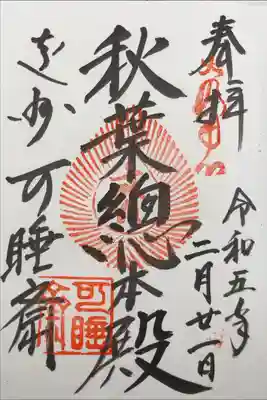 奉拝
令和五年
二月廿一日
秋葉總本殿
遠州 可睡斎